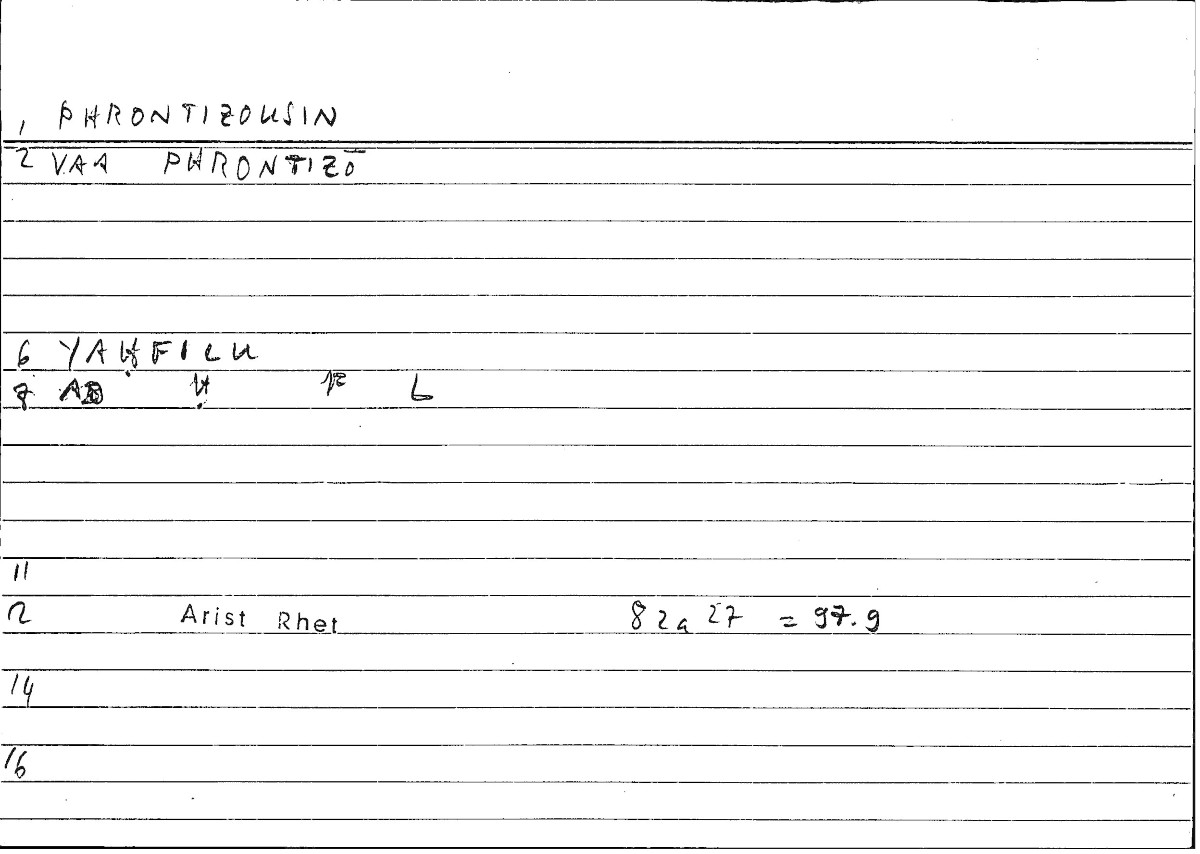 1 PHRONTIZOUSIN
2 VAA PHRONTIZŌ
6 YAḤFILU
7 Ḥ F L
11
12 Arist Rhet 82a 27 = 97.9
14
16